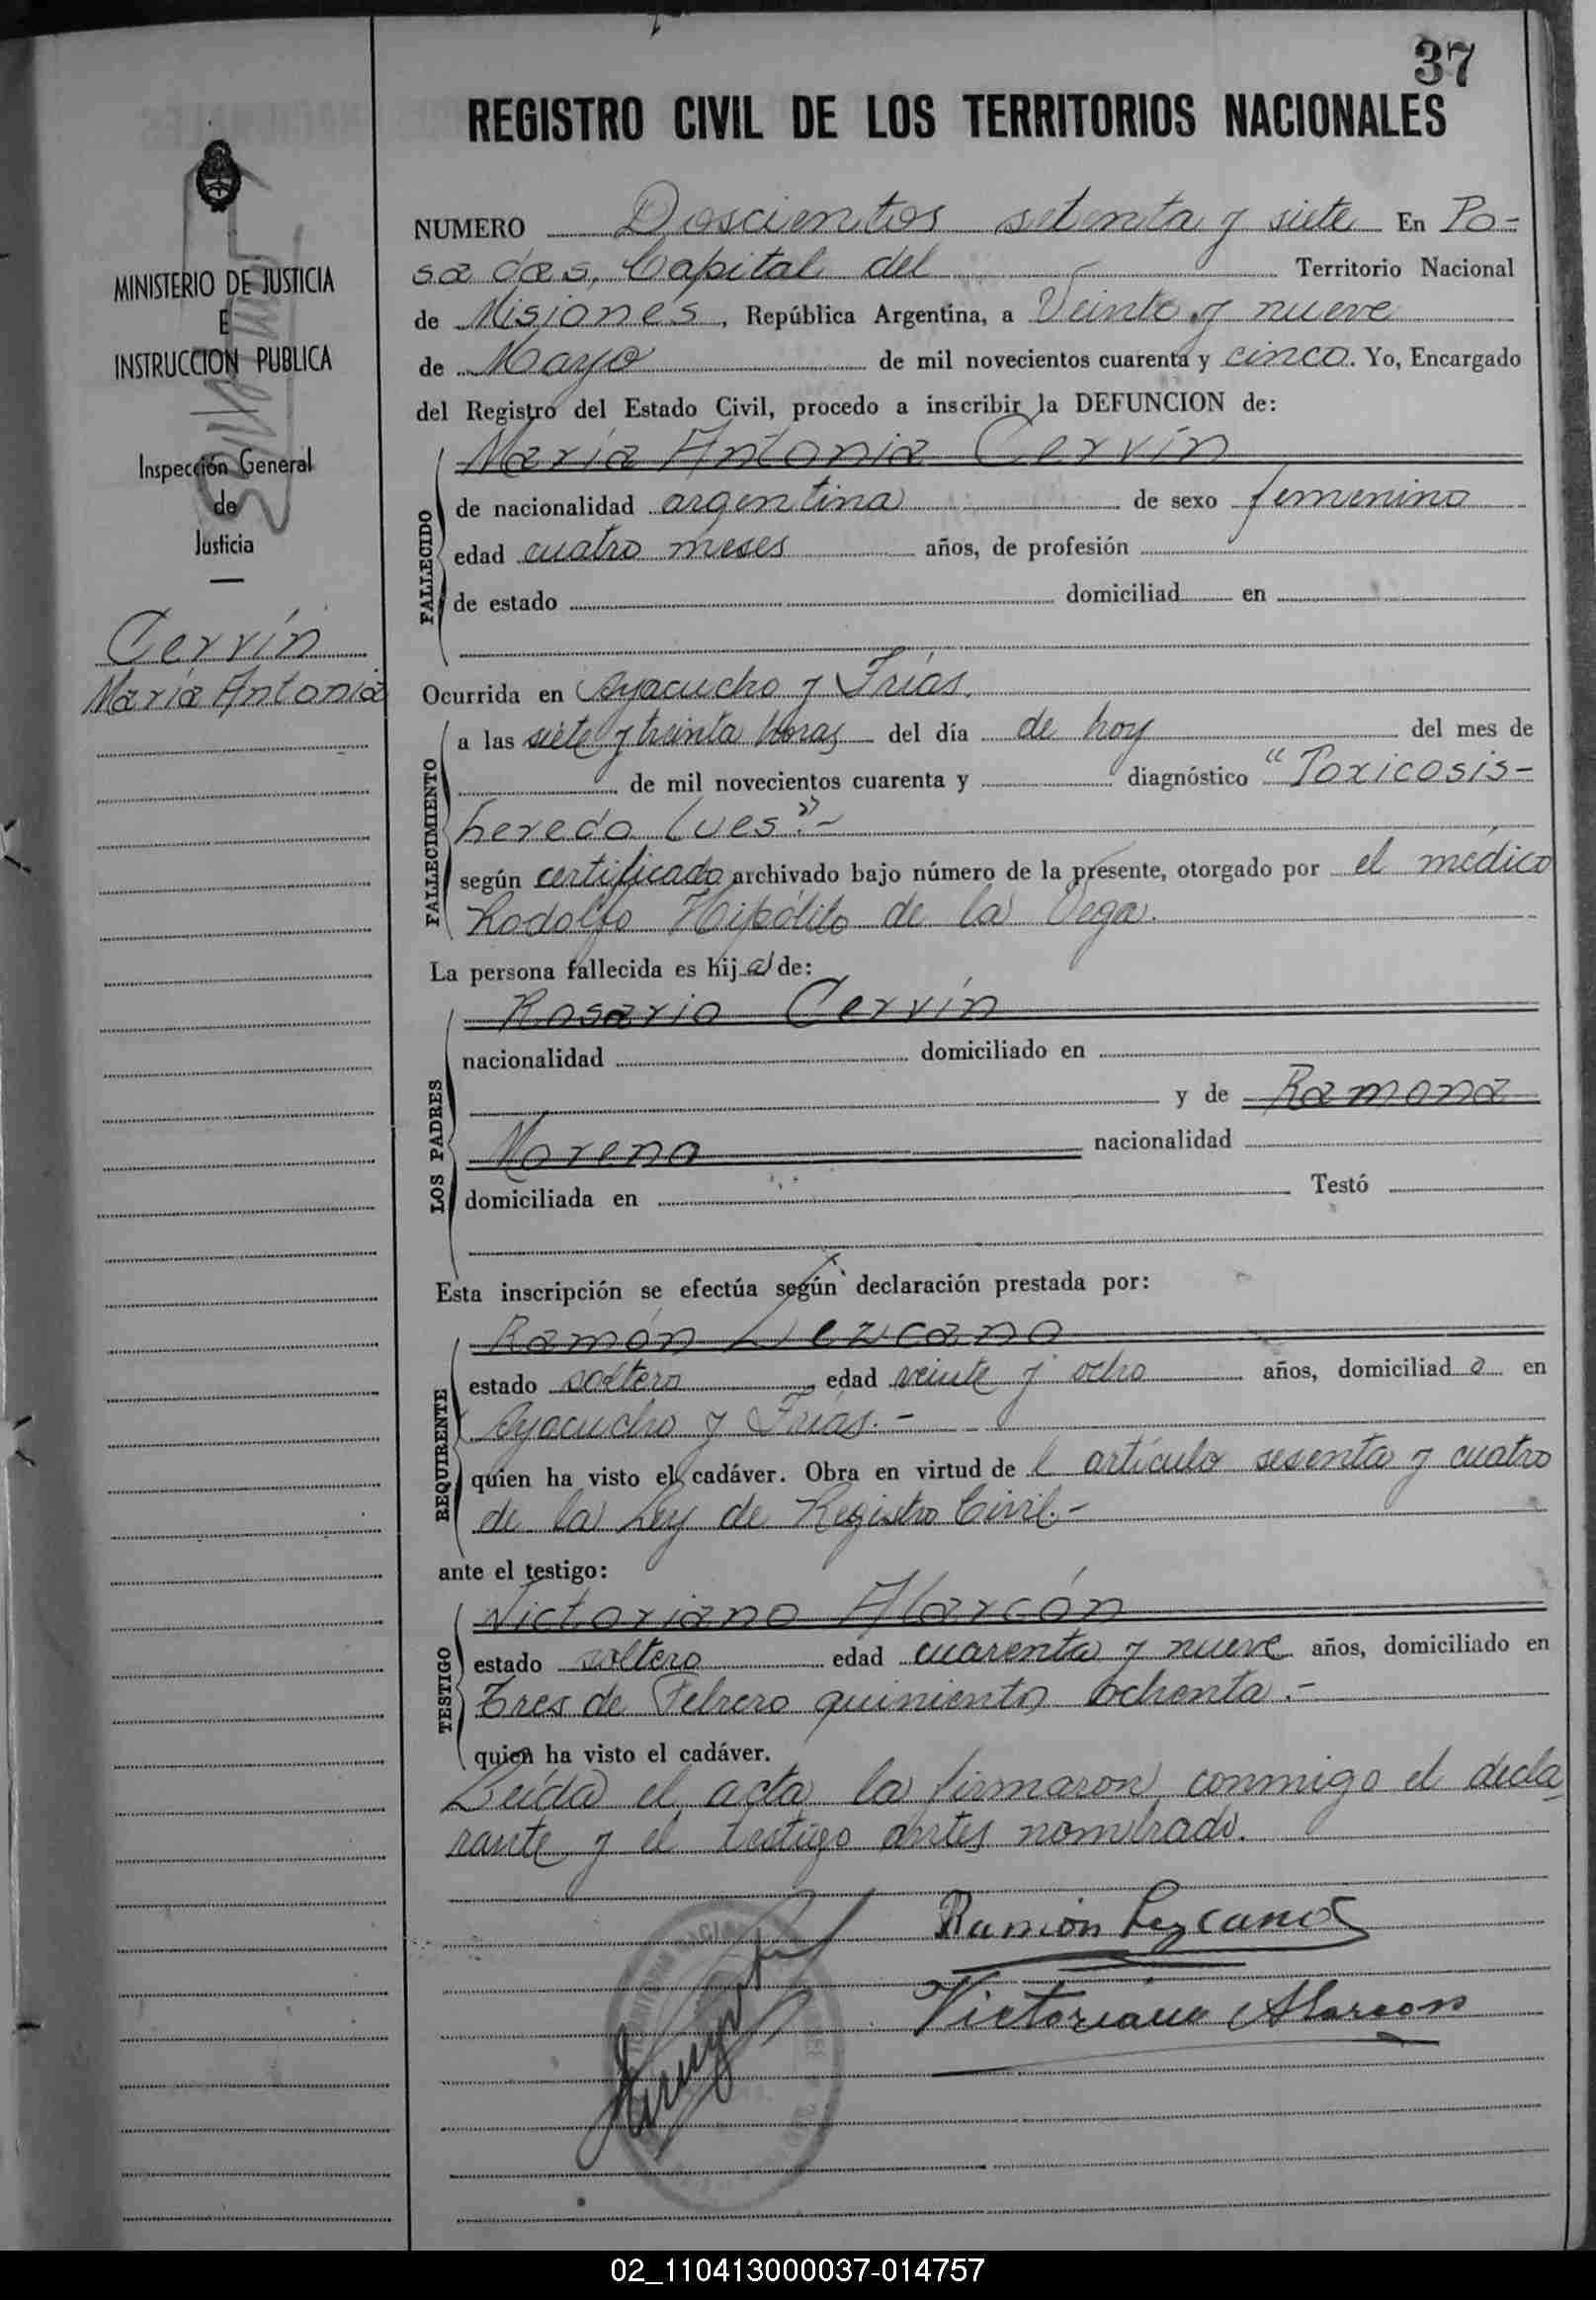 37
REGISTRO CIVIL DE LOS TERRITORIOS NACIONALES
MINISTERIO DE JUSTICIA
E
INSTRUCCION PUBLICA
Inspección General
de
Justicia
Cervín
María Antonia
NUMERO Doscientos setenta y siete En Po-
sadas, Capital del Territorio Nacional
de Misiones, República Argentina, a Veinte y nueve
de Mayo de mil novecientos cuarenta y cinco. Yo, Encargado
del Registro del Estado Civil, procedo a inscribir la DEFUNCION de:
FALLECIDO
María Antonia Cervín
de nacionalidad argentina de sexo femenino
edad cuatro meses años, de profesión
de estado domiciliad en
Ocurrida en Ayacucho y Frías.
FALLECIMIENTO
a las siete y treinta horas del día de hoy del mes de
de mil novecientos cuarenta y diagnóstico "Toxicosis-
heredo lues".-
según certificado archivado bajo número de la presente, otorgado por el médico
Rodolfo Hipólito de la Vega.
La persona fallecida es hija de:
LOS PADRES
Rosario Cervín
nacionalidad domiciliado en
y de Ramona
Moreno nacionalidad
domiciliada en Testó
Esta inscripción se efectúa según declaración prestada por:
REQUIRENTE
Ramón Lezcano
estado soltero edad veinte y ocho años, domiciliado en
Ayacucho y Frías.-
quien ha visto el cadáver. Obra en virtud del artículo sesenta y cuatro
de la Ley de Registro Civil.-
ante el testigo:
TESTIGO
Victoriano Alarcón
estado soltero edad cuarenta y nueve años, domiciliado en
Tres de Febrero quinientos ochenta.-
quien ha visto el cadáver.
Leída el acta la firmaron conmigo el decla-
rante y el testigo antes nombrado.
Ramón Lezcano
Victoriano Alarcon
02_110413000037-014757